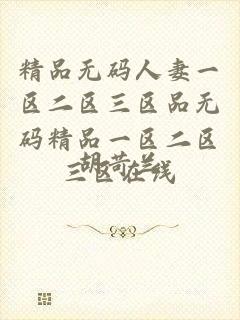 精品无码人妻一
区二区三区品无
码精品一区二区
三区在线
胡苛兰